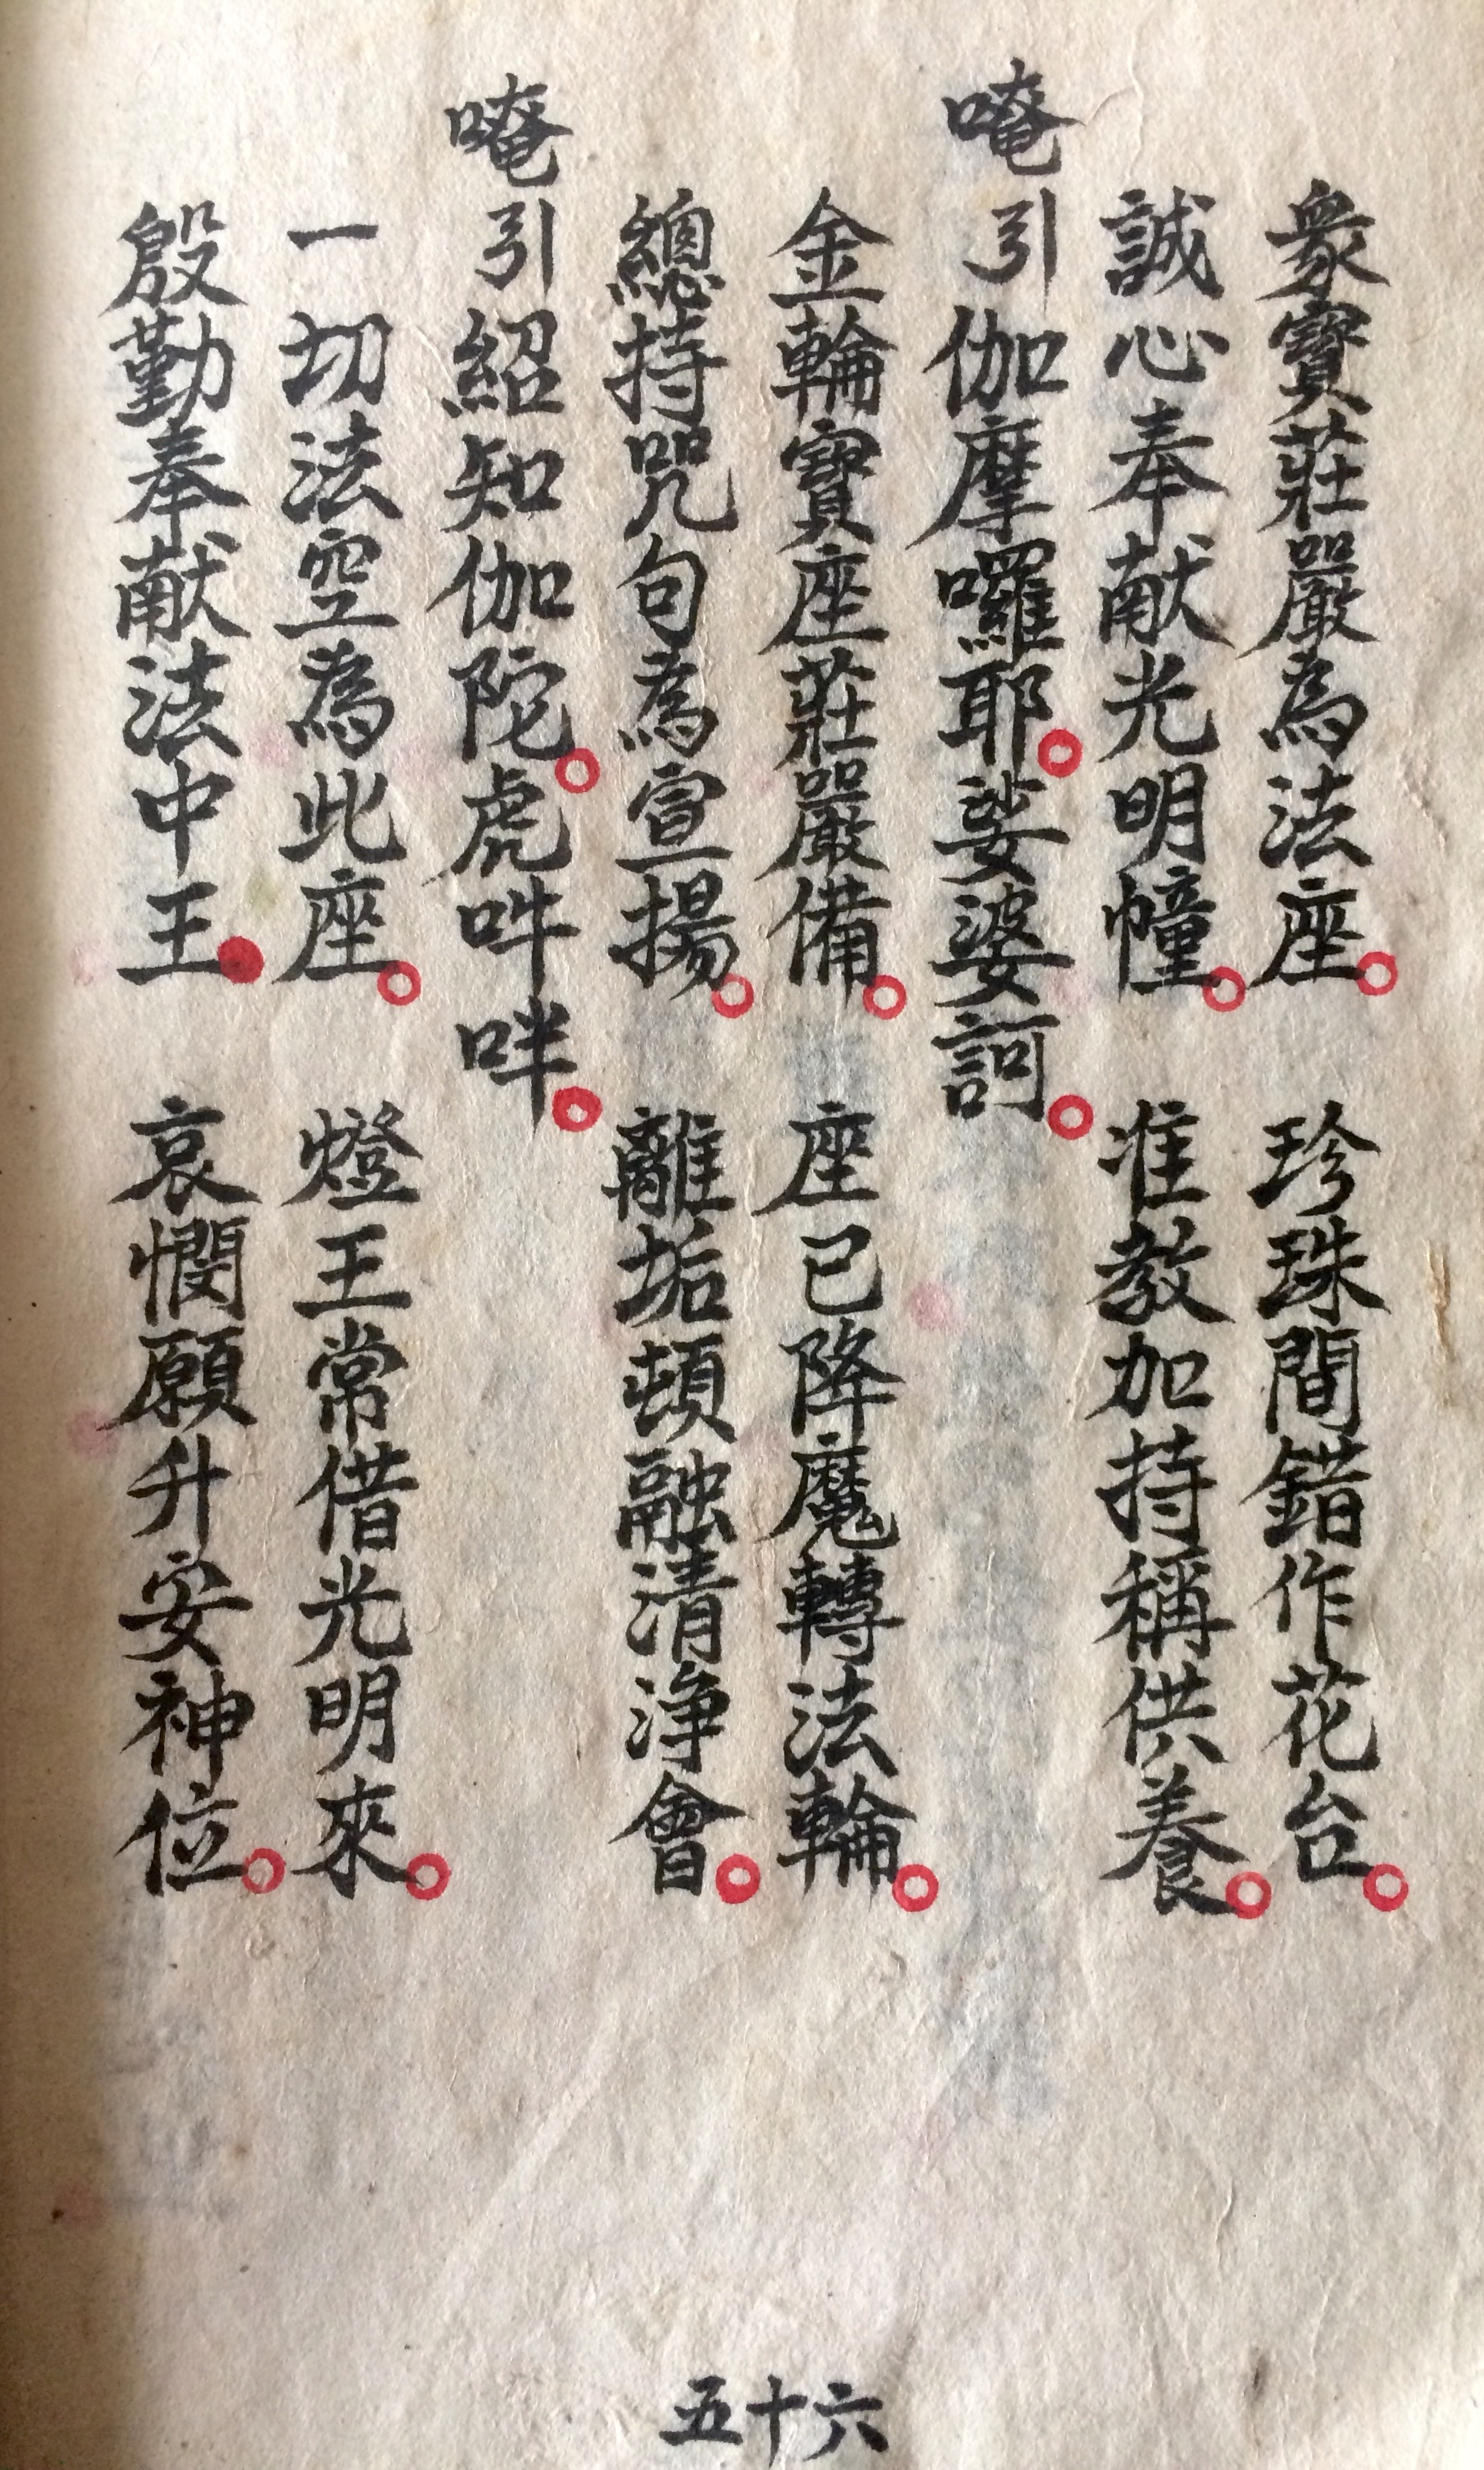 衆寳莊嚴為法座。珍珠間錯作花台。
誠心奉献光明幢。准教加持稱供養。
唵引伽摩囉耶。娑婆訶。
金輪寳座莊嚴備。座已降魔轉法輪。
總持咒句為宣揚。離垢頓融清净會。
唵引紹知伽陀。虎吽咩。
一切法空為此座。燈王常借光明來。
殷勤奉献法中王。哀憫願升安神位。
五十六